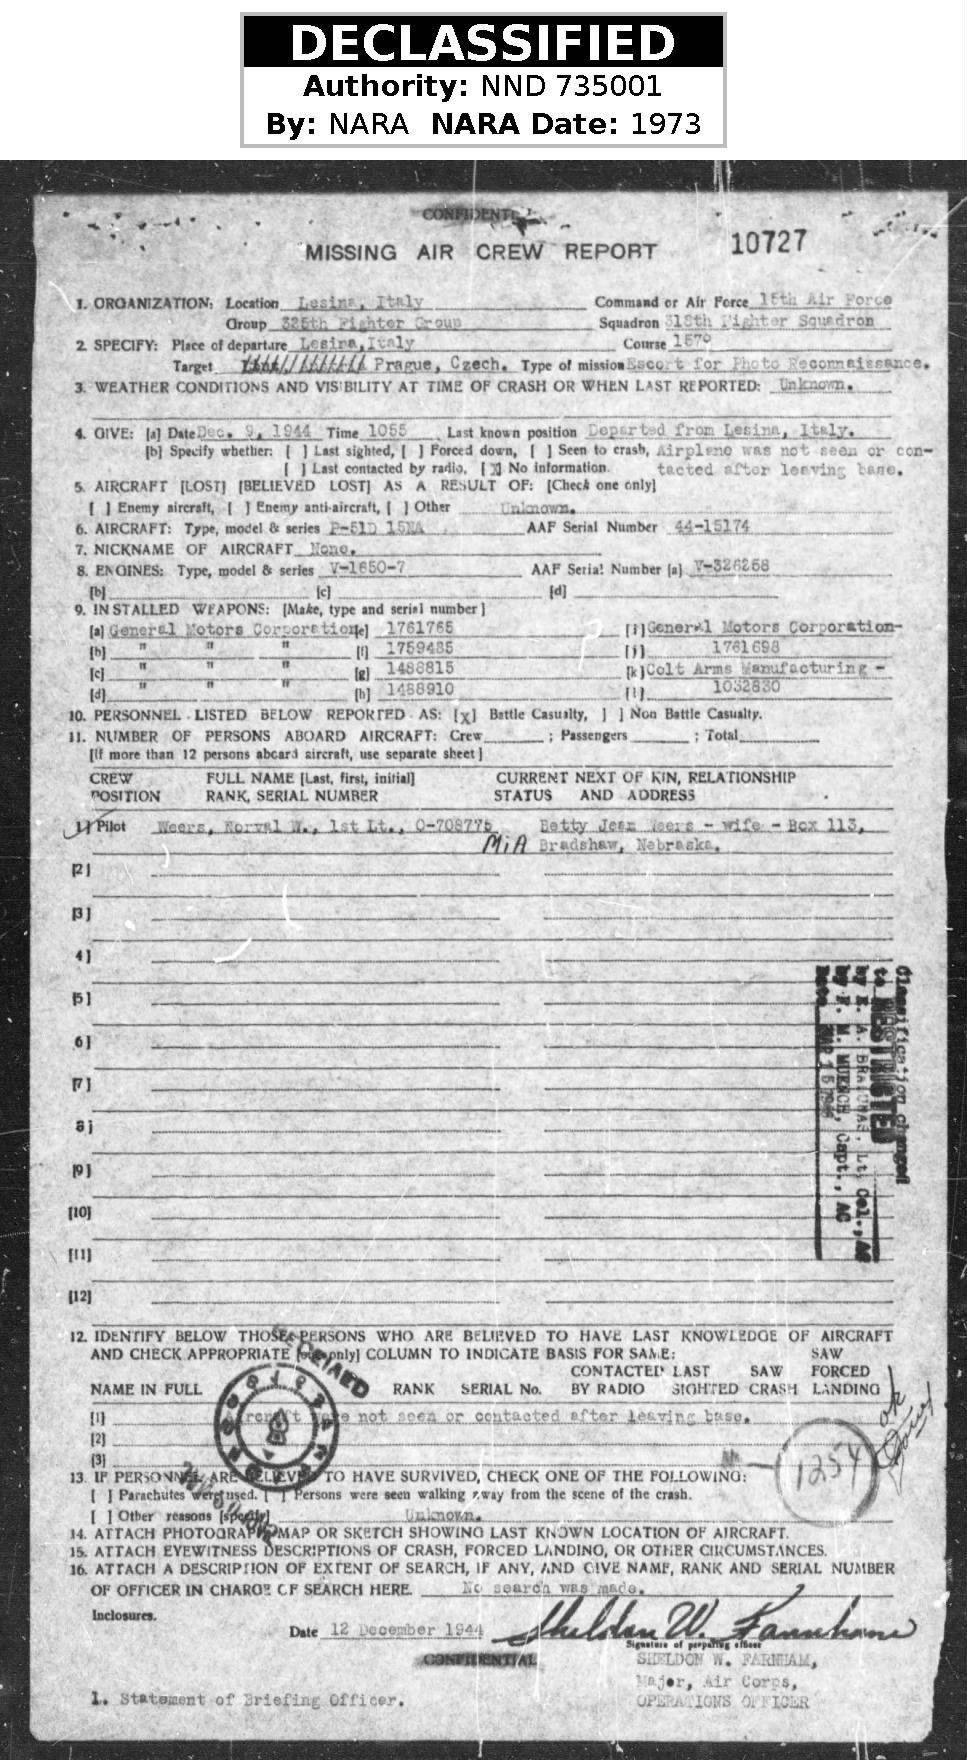 DECLASSIFIED
Authority: NND 735001
By: NARA NARA Date: 1973
CONFIDENTIAL
MISSING AIR CREW REPORT 10727
1. ORGANIZATION: Location Lesina, Italy Command or Air Force 15th Air Force
Group 325th Fighter Group Squadron 318th Fighter Squadron
2. SPECIFY: Place of departure Lesina, Italy Course 157°
Target Prague, Czech. Type of mission Escort for Photo Reconnaissance.
3. WEATHER CONDITIONS AND VISIBILITY AT TIME OF CRASH OR WHEN LAST REPORTED: Unknown.
4. GIVE: [a] Date Dec. 9, 1944 Time 1055 Last known position Departed from Lesina, Italy.
[b] Specify whether: [ ] Last sighted, [ ] Forced down, [ ] Seen to crash, Airplane was not seen or con-
[ ] Last contacted by radio, [X] No information. tacted after leaving base.
5. AIRCRAFT [LOST] [BELIEVED LOST] AS A RESULT OF: [Check one only]
[ ] Enemy aircraft, [ ] Enemy anti-aircraft, [ ] Other Unknown.
6. AIRCRAFT: Type, model & series P-51D 15NA AAF Serial Number 44-15174
7. NICKNAME OF AIRCRAFT None.
8. ENGINES: Type, model & series V-1650-7 AAF Serial Number [a] V-326268
[b] [c] [d]
9. INSTALLED WEAPONS: [Make, type and serial number]
[a] General Motors Corporation [e] 1761765 [i] General Motors Corporation-
[b] " " " [f] 1759485 [j] 1761698
[c] " " " [g] 1488815 [k] Colt Arms Manufacturing -
[d] " " " [h] 1488910 [l] 1032830
10. PERSONNEL LISTED BELOW REPORTED AS: [x] Battle Casualty, [ ] Non Battle Casualty.
11. NUMBER OF PERSONS ABOARD AIRCRAFT: Crew ; Passengers ; Total
[If more than 12 persons aboard aircraft, use separate sheet]
CREW FULL NAME [Last, first, initial] CURRENT NEXT OF KIN, RELATIONSHIP
POSITION RANK, SERIAL NUMBER STATUS AND ADDRESS
1] Pilot Weers, Norval W., 1st Lt., O-708775 Betty Jean Weers - wife - Box 113,
MiA Bradshaw, Nebraska.
[2]
[3]
4]
[5]
6]
[7]
8]
[9]
[10]
[11]
[12]
Classification changed
to RESTRICTED
by E. A. Lt. Col., AC
by F. M. MUENCH, Capt., AC
Date
12. IDENTIFY BELOW THOSE PERSONS WHO ARE BELIEVED TO HAVE LAST KNOWLEDGE OF AIRCRAFT
AND CHECK APPROPRIATE [one only] COLUMN TO INDICATE BASIS FOR SAME: SAW
CONTACTED LAST SAW FORCED
NAME IN FULL RANK SERIAL No. BY RADIO SIGHTED CRASH LANDING
[1] Aircraft were not seen or contacted after leaving base.
[2]
[3]
ok
1254
13. IF PERSONNEL ARE BELIEVED TO HAVE SURVIVED, CHECK ONE OF THE FOLLOWING:
[ ] Parachutes were used. [ ] Persons were seen walking away from the scene of the crash.
[ ] Other reasons [specify] Unknown.
14. ATTACH PHOTOGRAPH, MAP OR SKETCH SHOWING LAST KNOWN LOCATION OF AIRCRAFT.
15. ATTACH EYEWITNESS DESCRIPTIONS OF CRASH, FORCED LANDING, OR OTHER CIRCUMSTANCES.
16. ATTACH A DESCRIPTION OF EXTENT OF SEARCH, IF ANY, AND GIVE NAME, RANK AND SERIAL NUMBER
OF OFFICER IN CHARGE OF SEARCH HERE. No search was made.
Inclosures.
Date 12 December 1944 Sheldon W. Farnham
Signature of preparing officer
CONFIDENTIAL SHELDON W. FARNHAM,
Major, Air Corps,
1. Statement of Briefing Officer. OPERATIONS OFFICER